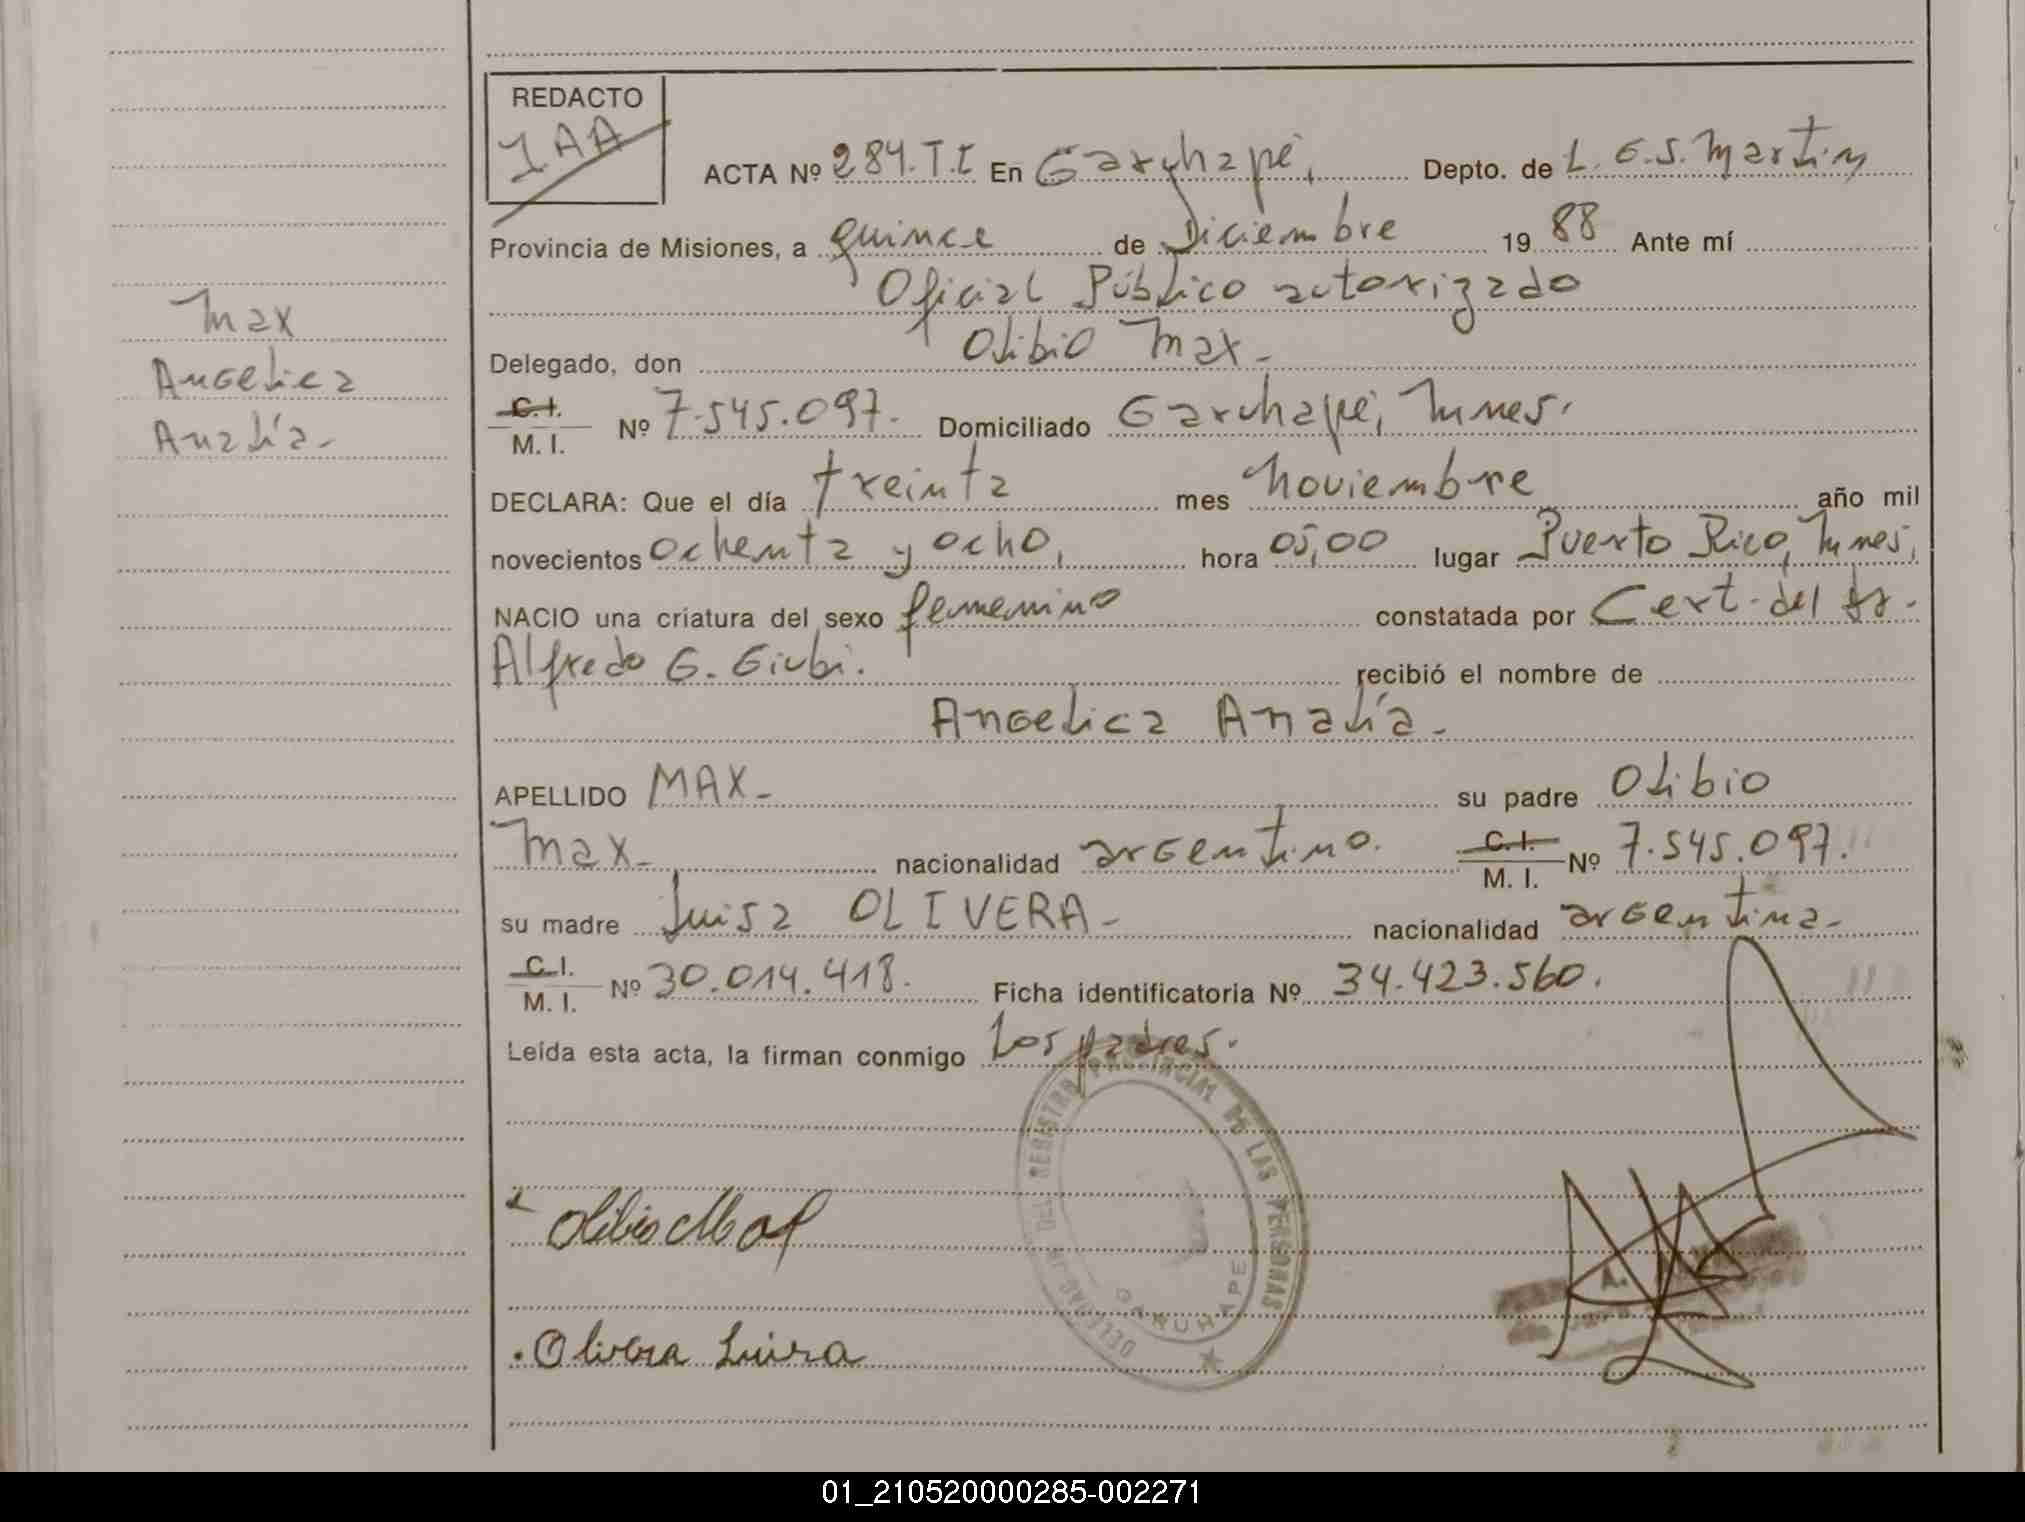 REDACTO
IAA
ACTA Nº 284.T.I En Garuhapé, Depto. de L.G.S. Martin
Provincia de Misiones, a quince de Diciembre 19 88 Ante mí
Oficial Público autorizado
Delegado, don Olibio Max.
C.I. M.I. Nº 7.545.097. Domiciliado Garuhapé, Mnes.
DECLARA: Que el día treinta mes noviembre año mil
novecientos ochenta y ocho, hora 05,00 lugar Puerto Rico, Mnes,
NACIO una criatura del sexo femenino constatada por Cert. del Dr.
Alfredo G. Giubi. recibió el nombre de
Angelica Analía.
APELLIDO MAX. su padre Olibio
Max. nacionalidad argentino. C.I. M.I. Nº 7.545.097.
su madre Luisa OLIVERA. nacionalidad argentina.
C.I. M.I. Nº 30.014.418. Ficha identificatoria Nº 34.423.560.
Leída esta acta, la firman conmigo Los padres.
Max
Angelica
Analía.
Olibio Max
Olivera Luisa
DELEGACION DEL REGISTRO PROVINCIAL DE LAS PERSONAS
GARUHAPE
01_210520000285-002271